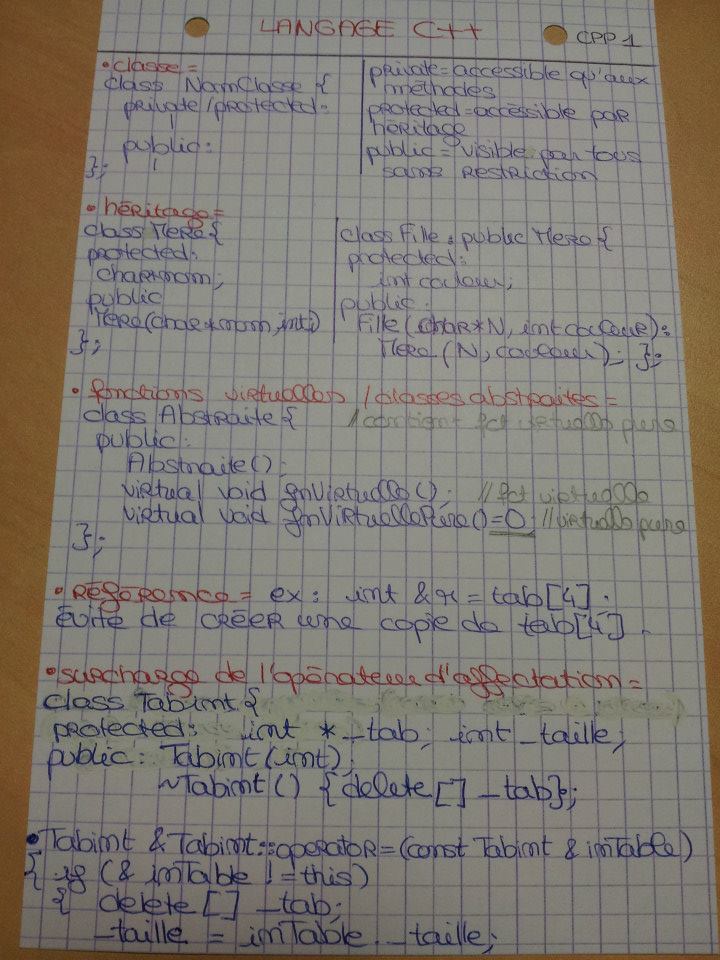 LANGAGE C++
CPP 1
• classe =
class NomClasse {
private/protected:
public:
};
private = accessible qu'aux
méthodes
protected = accessible par
héritage
public = visible par tous
sans restriction
• héritage =
class Mere {
protected:
char*nom;
public
Mere(char*nom,int)
};
class Fille : public Mere {
protected:
int couleur;
public:
Fille (char*N, int couleur):
Mere (N, couleur); };
• fonctions virtuelles / classes abstraites =
class Abstraite { //contient fct virtuelle pure
public:
Abstraite();
virtual void fnVirtuelle(); //fct virtuelle
virtual void fnVirtuellePure()=0; //virtuelle pure
};
• Référence = ex: int &r = tab[4];
évite de créer une copie de tab[4].
• surcharge de l'opérateur d'affectation =
class Tabint {
protected: int *_tab; int _taille;
public: Tabint(int);
~Tabint() {delete[] _tab};
• Tabint & Tabint::operator=(const Tabint & inTable)
{ if (& inTable != this)
{ delete[] _tab;
_taille = inTable._taille;